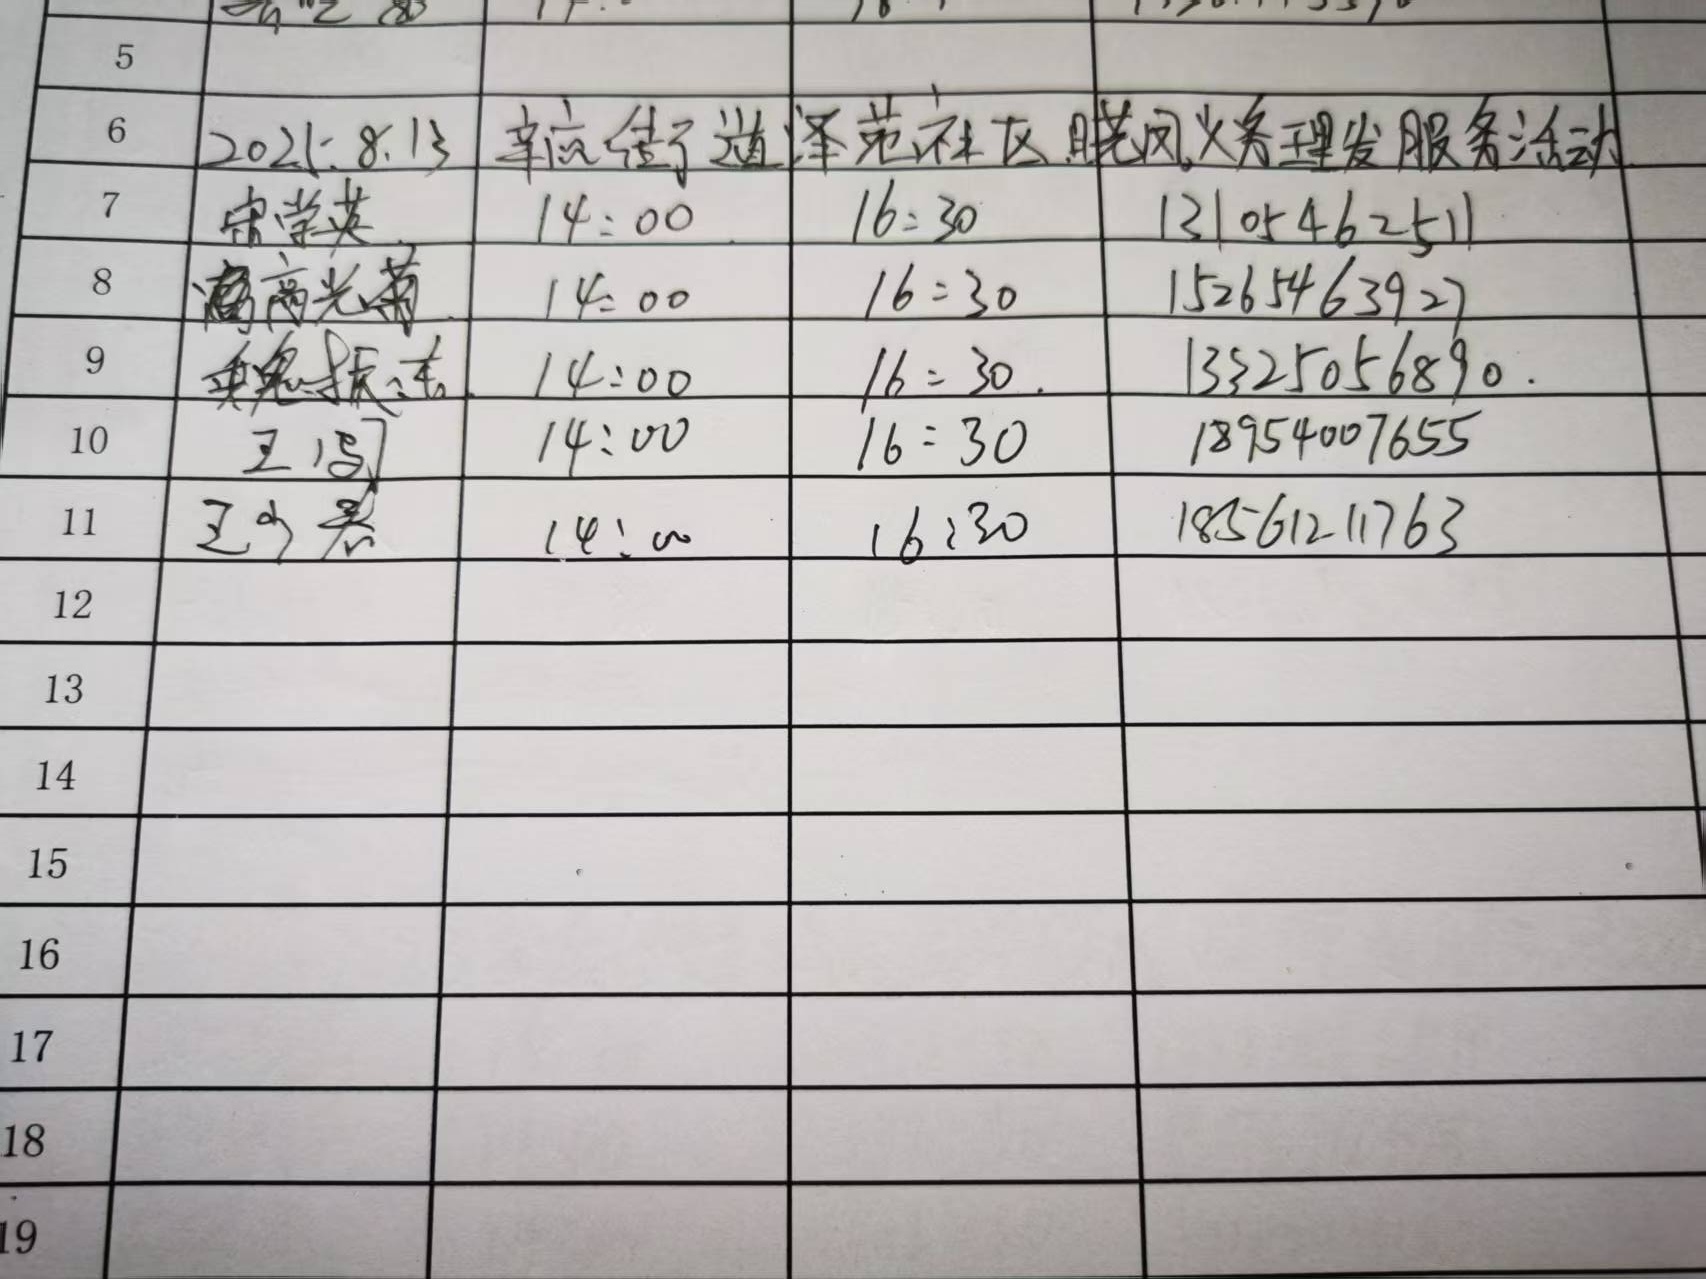 5
6 2021.8.13 辛店街道泽苑社区晓风义务理发服务活动
7 宋学英 14:00 16:30 13105462511
8 高光菊 14:00 16:30 15265463927
9 魏振 14:00 16:30 13325056890.
10 王 14:00 16:30 18954007655
11 王 14:00 16:30 18561211763
12
13
14
15
16
17
18
19